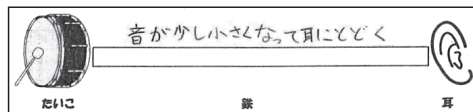 音が少し小さくなって耳にとどく
たいこ 鉄 耳